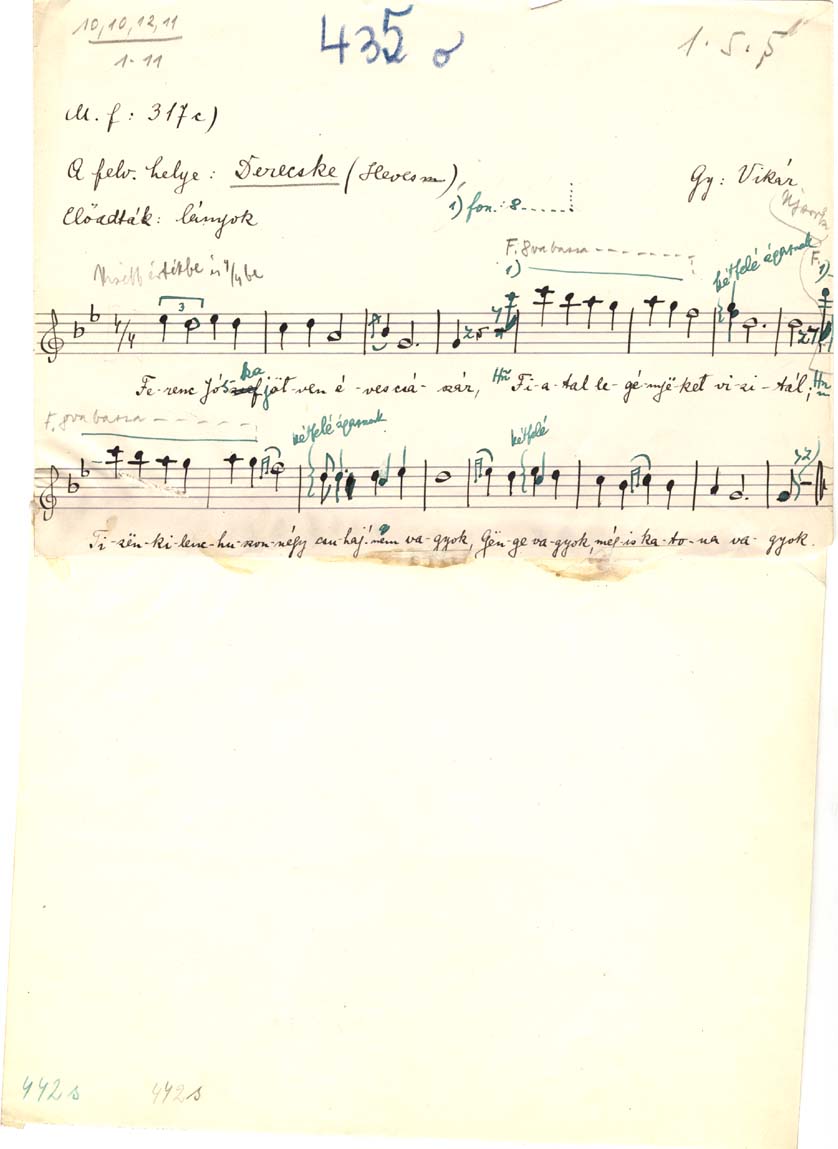 10,10,12,11
1-11
435 o
1. 5. 5
M. f: 317c)
A felv. helye: Derecske (Heves m),
Gy: Vikár
Előadták: lányok
1) fon.: 8......
F. 8va bassa
1)
kétfelé ágasnak
F.
1)
4/4
3
Fe-renc Jós-ka jöt-ven é-ves csá-szár, Hñ Fi-a-tal le-gé-nyë-ket vi-zi-tál; Hñ
F. 8va bassa
kétfelé ágasnak
kétfelé
Ti-zën-ki-lenc-hu-szon-négy csu-haj nem va-gyok, Gën-ge va-gyok, mégis ka-to-na va-gyok.
442s
442s